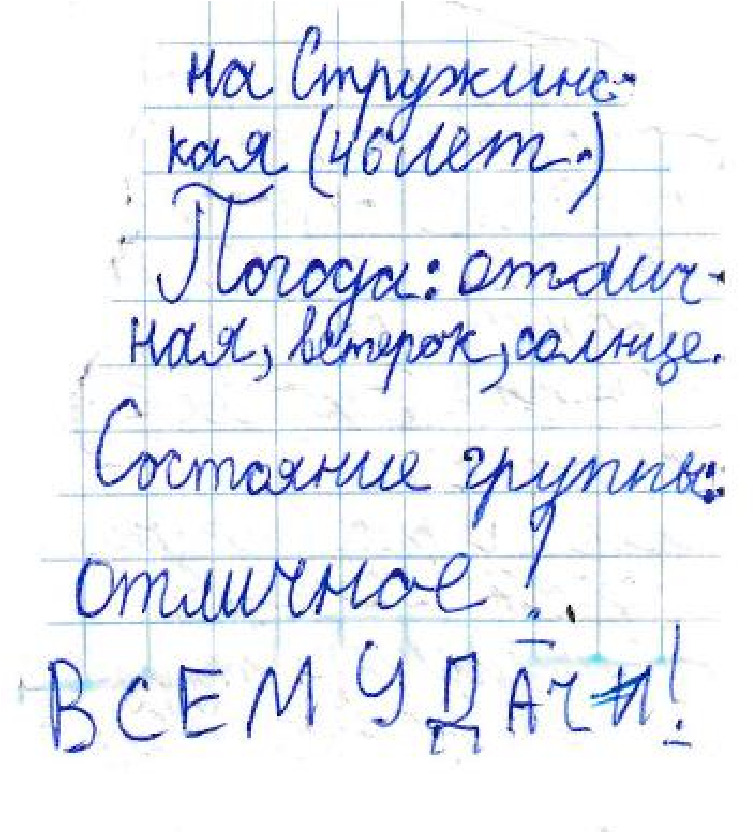 на Стружинс-
кая (46 лет.)
Погода: отлич-
ная, ветерок, солнце.
Состояние группы:
отличное!
ВСЕМ УДАЧИ!